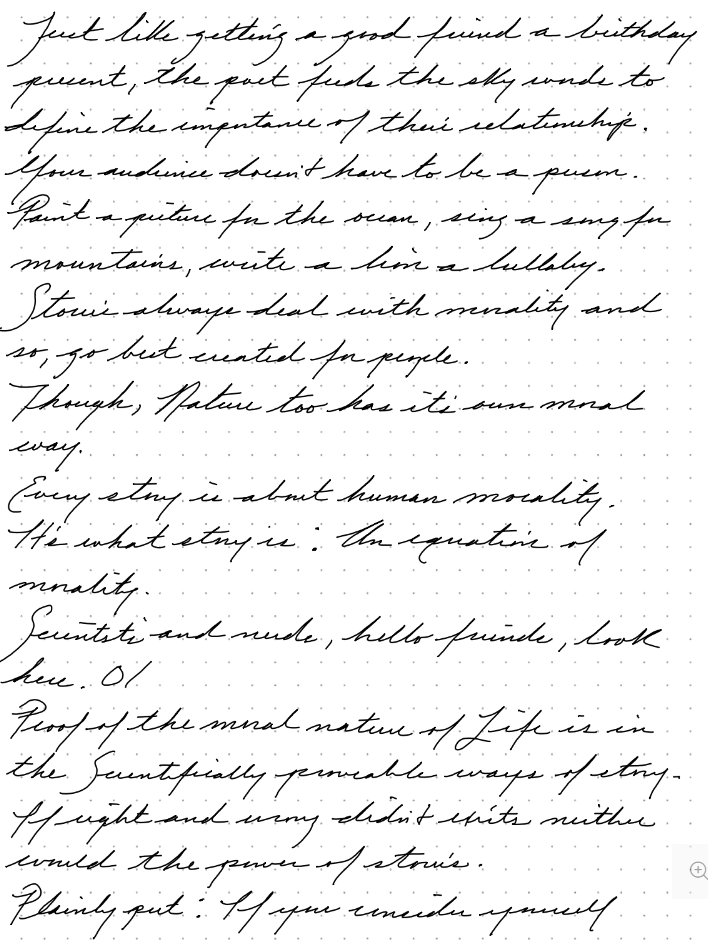 Just like getting a good friend a birthday
present, the poet finds the sky words to
define the importance of their relationship.
Your audience doesn't have to be a person.
Paint a picture for the ocean, sing a song for
mountains, write a lion a lullaby.
Stories always deal with morality and
so, go best created for people.
Though, Nature too has it's own moral
way.
Every story is about human morality.
It's what story is: An equation of
morality.
Scientists and nerds, hello friends, look
here. 01
Proof of the moral nature of Life is in
the Scientifically proveable ways of story.
If right and wrong didn't exits neither
would the power of stories.
Plainly put: If you consider yourself